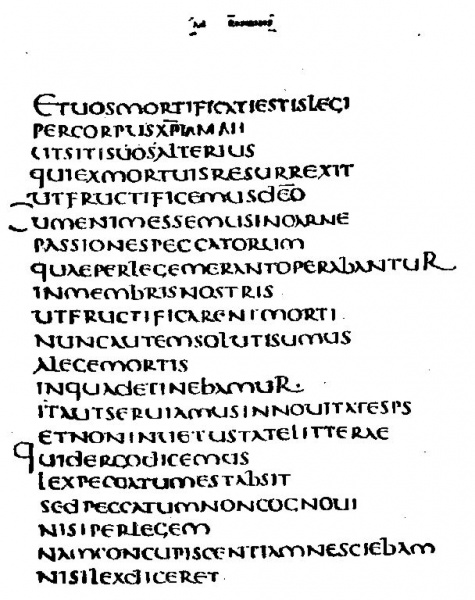 AD ROMANOS
ETUOSMORTIFICATIESTISLEGI
PERCORPUSXPI
UTSITISUOSALTERIUS
QUIEXMORTUISRESURREXIT
UTFRUCTIFICEMUSDEO
UMENIMESSEMUSINCARNE
PASSIONESPECCATORUM
QUAEPERLEGEMERANTOPERABANTUR
INMEMBRISNOSTRIS
UTFRUCTIFICARENTMORTI
NUNCAUTEMSOLUTISUMUS
ALEGEMORTIS
INQUADETINEBAMUR.
ITAUTSERUIAMUSINNOUITATESPS
ETNONINUETUSTATELITTERAE
QUIDERGODICEMUS
LEXPECCATUMESTABSIT
SEDPECCATUMNONCOGNOUI
NISIPERLEGEM
NAMCONCUPISCENTIAMNESCIEBAM
NISILEXDICERET